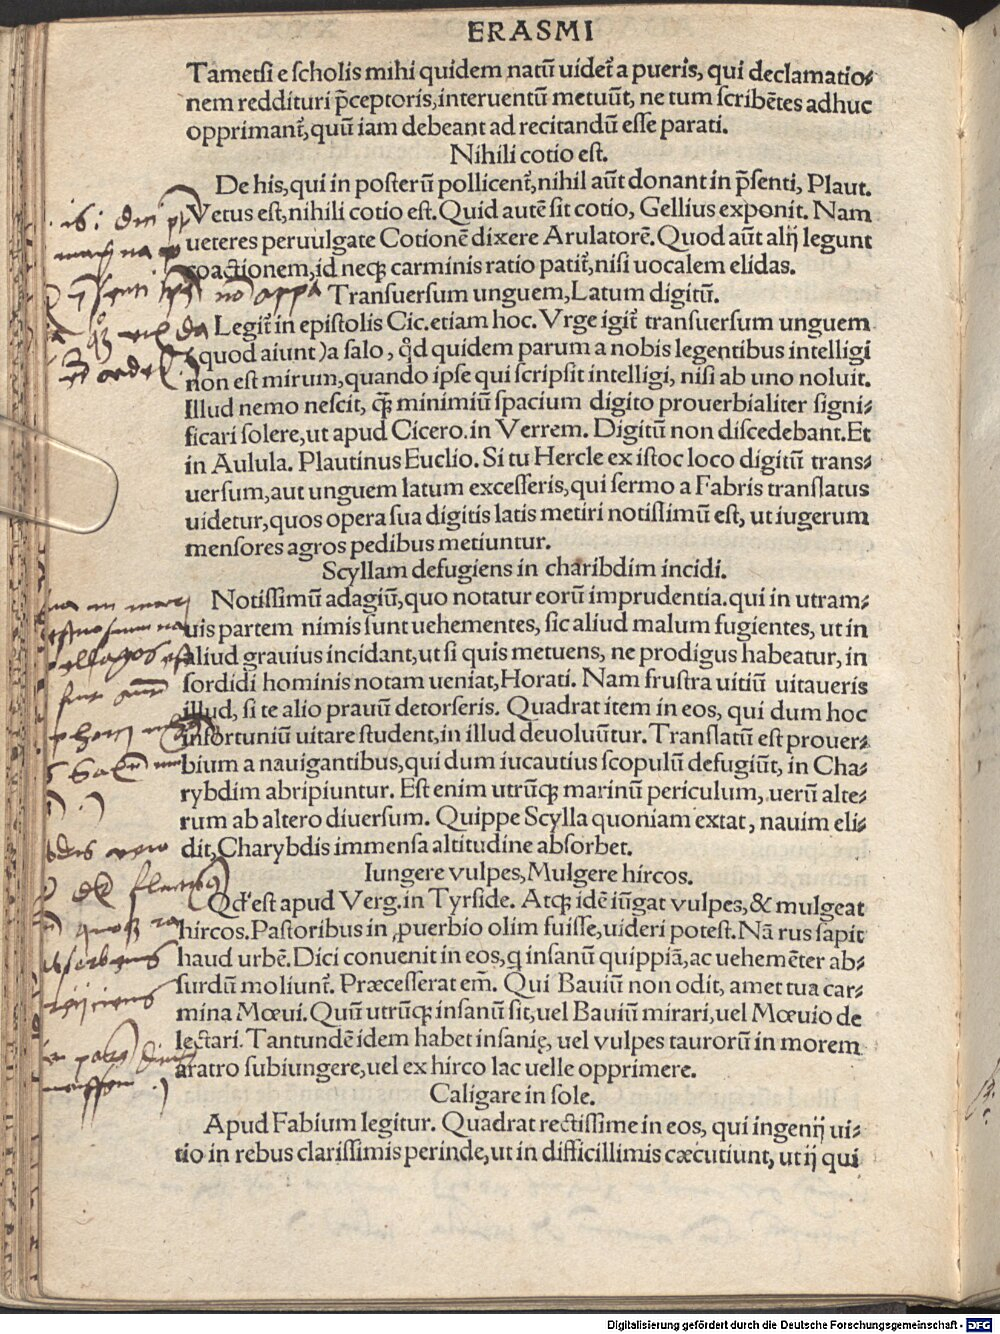 ERASMI
Tametsi e scholis mihi quidem natū uidet᷑ a pueris, qui declamatio-
nem reddituri p̄ceptoris, interuentū metuūt, ne tum scribētes adhuc
opprimant᷑, quū iam debeant ad recitandū esse parati.
Nihili cotio est.
De his, qui in posterū pollicent᷑, nihil aūt donant in p̄senti, Plaut.
Vetus est, nihili cotio est. Quid autē sit cotio, Gellius exponit. Nam
ueteres peruulgate Cotionē dixere Arulatorē. Quod aūt alij legunt
coactionem, id neqꝫ carminis ratio patit᷑, nisi uocalem elidas.
Transuersum unguem, Latum digitū.
Legit᷑ in epistolis Cic. etiam hoc. Vrge igit᷑ transuersum unguem
(quod aiunt) a salo, qd̓ quidem parum a nobis legentibus intelligi
non est mirum, quando ipse qui scripsit intelligi, nisi ab uno noluit.
Illud nemo nescit, q̄ꝫ minimiū spacium digito prouerbialiter signi-
ficari solere, ut apud Cicero. in Verrem. Digitū non discedebant. Et
in Aulula. Plautinus Euclio. Si tu Hercle ex istoc loco digitū trans-
uersum, aut unguem latum excesseris, qui sermo a Fabris translatus
uidetur, quos opera sua digitis latis metiri notissimū est, ut iugerum
mensores agros pedibus metiuntur.
Scyllam defugiens in charibdim incidi.
Notissimū adagiū, quo notatur eorū imprudentia. qui in utram-
uis partem nimis sunt uehementes, sic aliud malum fugientes, ut in
aliud grauius incidant, ut si quis metuens, ne prodigus habeatur, in
sordidi hominis notam ueniat, Horati. Nam frustra uitiū uitaueris
illud, si te alio prauū detorseris. Quadrat item in eos, qui dum hoc
infortuniū uitare student, in illud deuoluūtur. Translatū est prouer-
bium a nauigantibus, qui dum iucautius scopulū defugiūt, in Cha-
rybdim abripiuntur. Est enim utrūqꝫ marinū periculum, uerū alte-
rum ab altero diuersum. Quippe Scylla quoniam extat, nauim eli-
dit, Charybdis immensa altitudine absorbet.
Iungere vulpes, Mulgere hircos.
Qd̓ est apud Verg. in Tyrside. Atqꝫ idē iūgat vulpes, & mulgeat
hircos. Pastoribus in ꝓuerbio olim fuisse, uideri potest. Nā rus sapit
haud urbē. Dici conuenit in eos, q insanū quippiā, ac uehemēter ab-
surdū moliunt᷑. Præcesserat em̄. Qui Bauiū non odit, amet tua car-
mina Mœui. Quū utrūqꝫ insanū sit, uel Bauiū mirari, uel Mœuio de
lectari. Tantundē idem habet insanię, uel vulpes taurorū in morem
aratro subiungere, uel ex hirco lac uelle opprimere.
Caligare in sole.
Apud Fabium legitur. Quadrat rectissime in eos, qui ingenij ui-
tio in rebus clarissimis perinde, ut in difficillimis cæcutiunt, ut ij qui
Digitalisierung gefördert durch die Deutsche Forschungsgemeinschaft - DFG